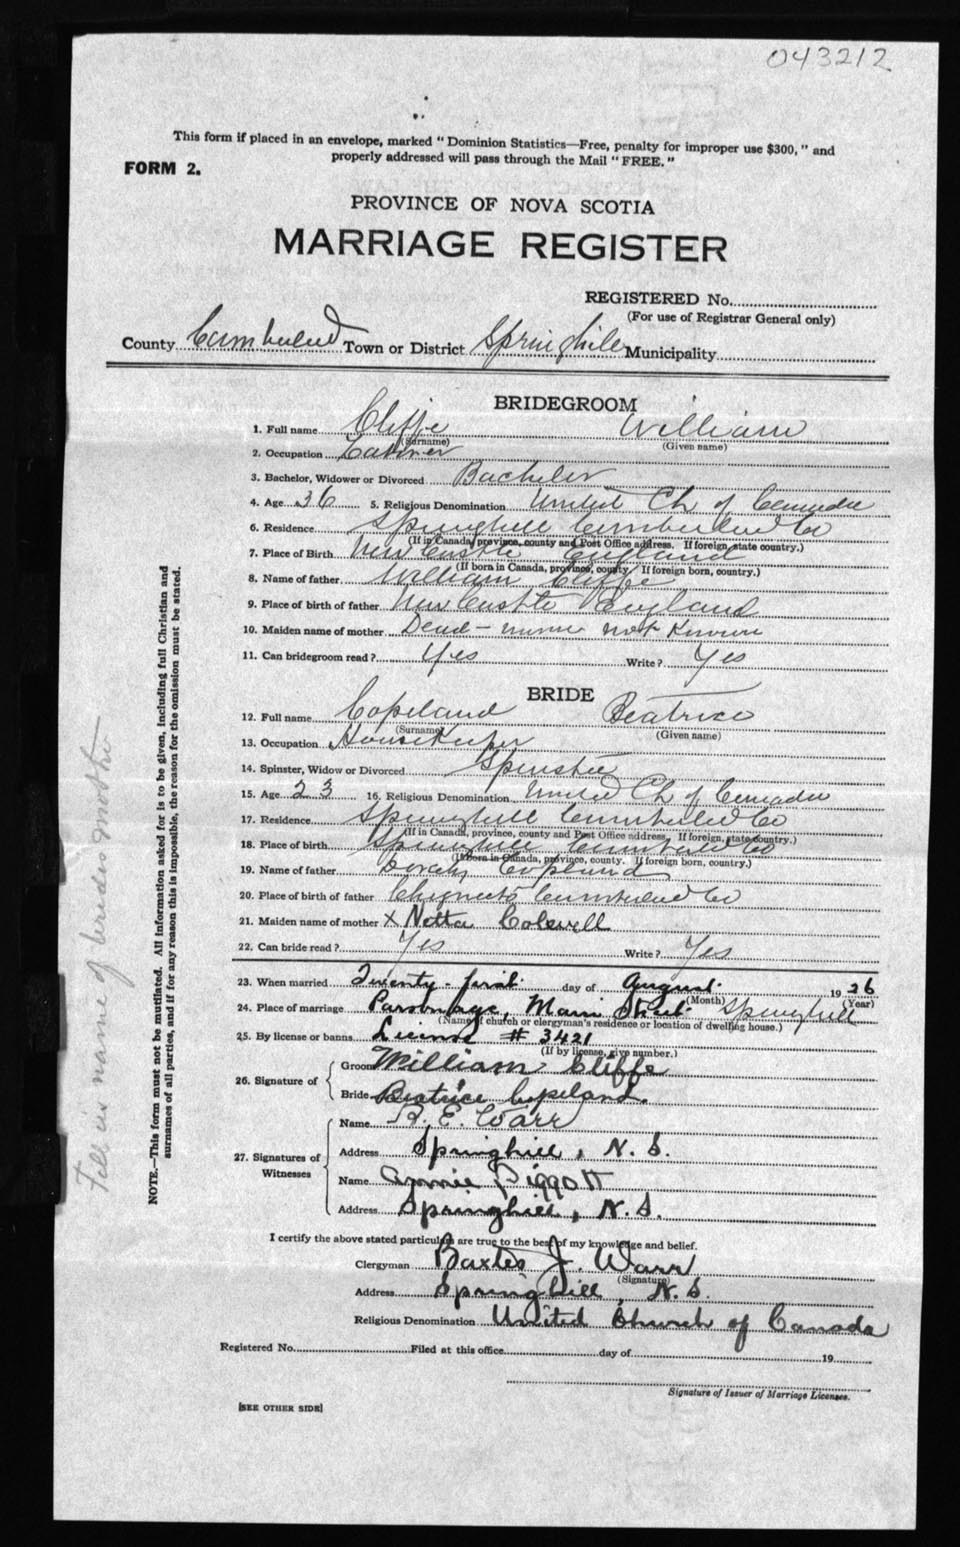 043212
This form if placed in an envelope, marked "Dominion Statistics—Free, penalty for improper use $300," and
properly addressed will pass through the Mail "FREE."
FORM 2.
PROVINCE OF NOVA SCOTIA
MARRIAGE REGISTER
REGISTERED No.
(For use of Registrar General only)
County Cumberland Town or District Springhill Municipality
BRIDEGROOM
1. Full name Cliffe William
(Surname) (Given name)
2. Occupation
3. Bachelor, Widower or Divorced Bachelor
4. Age 36 5. Religious Denomination United Ch of Canada
6. Residence Springhill Cumberland Co
(If in Canada, province, county and Post Office address. If foreign, state country.)
7. Place of Birth New Castle England
(If born in Canada, province, county. If foreign born, country.)
8. Name of father William Cliffe
9. Place of birth of father New Castle England
10. Maiden name of mother Dead - name not Known
11. Can bridegroom read? Yes Write? Yes
BRIDE
12. Full name Copeland Beatrice
(Surname) (Given name)
13. Occupation HouseKeeper
14. Spinster, Widow or Divorced Spinster
15. Age 23 16. Religious Denomination United Ch of Canada
17. Residence Springhill Cumberland Co
(If in Canada, province, county and Post Office address. If foreign, state country.)
18. Place of birth Springhill Cumberland Co
(If born in Canada, province, county. If foreign born, country.)
19. Name of father Copeland
20. Place of birth of father Chignecto Cumberland Co
21. Maiden name of mother x Netta Colwell
22. Can bride read? Yes Write? Yes
23. When married Twenty-first day of August 1926
(Month) (Year)
24. Place of marriage Parsonage, Main Street Springhill
(Name of church or clergyman's residence or location of dwelling house.)
25. By license or banns License # 3421
(If by license, give number.)
26. Signature of Groom William Cliffe
Bride Beatrice Copeland.
27. Signatures of Witnesses Name E. Warr
Address Springhill, N. S.
Name Annie Piggott
Address Springhill, N. S.
I certify the above stated particulars are true to the best of my knowledge and belief.
Clergyman Baxter J. Warr
(Signature)
Address Springhill, N. S.
Religious Denomination United Church of Canada
Registered No. Filed at this office day of 19
Signature of Issuer of Marriage Licenses.
[SEE OTHER SIDE]
NOTE.—This form must not be mutilated. All information asked for is to be given, including full Christian and
surnames of all parties, and if for any reason this is impossible, the reason for the omission must be stated.
Fill in name of brides mother